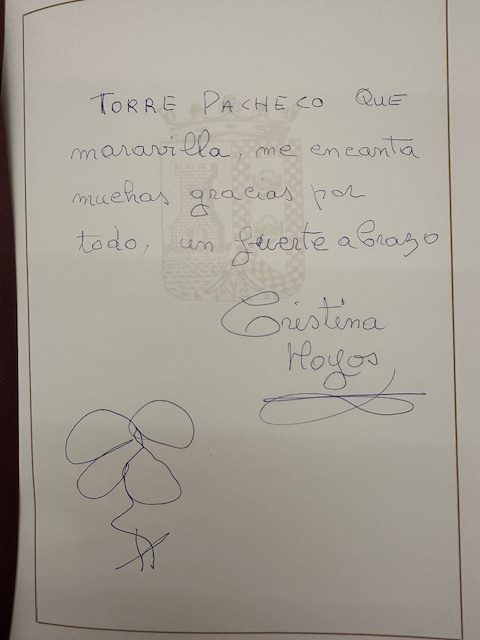 TORRE PACHECO QUE
maravilla, me encanta
muchas gracias por
todo, un fuerte abrazo
Cristina
Hoyos